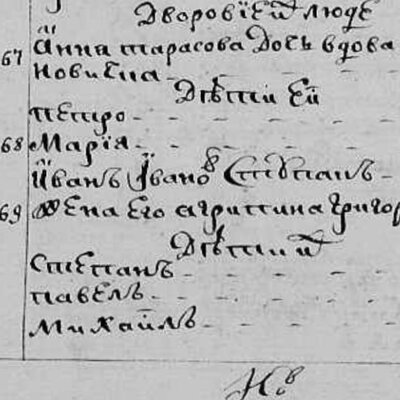 Дворовїе людѣ
67 Анна тарасова Дочь вдова
новица
Дѣтїи Еи
петро
68 Марїя
Иванъ Ивано Степанъ
69 жена Его агриппина григор
Дѣти и
Степанъ
павелъ
михаилъ